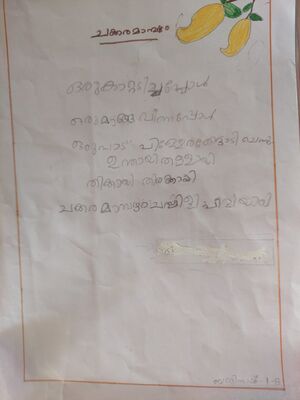 ചക്കരമാമ്പഴം
ഒരു കാറ്റടിച്ചപ്പോൾ
ഒരു മാങ്ങ വീണപ്പോൾ
ഒരുപാട് പിള്ളേരങ്ങോടി വന്നു
ഉന്തായി തള്ളായി
തിക്കായി തിരക്കായി
ചക്കര മാമ്പഴം
1-B